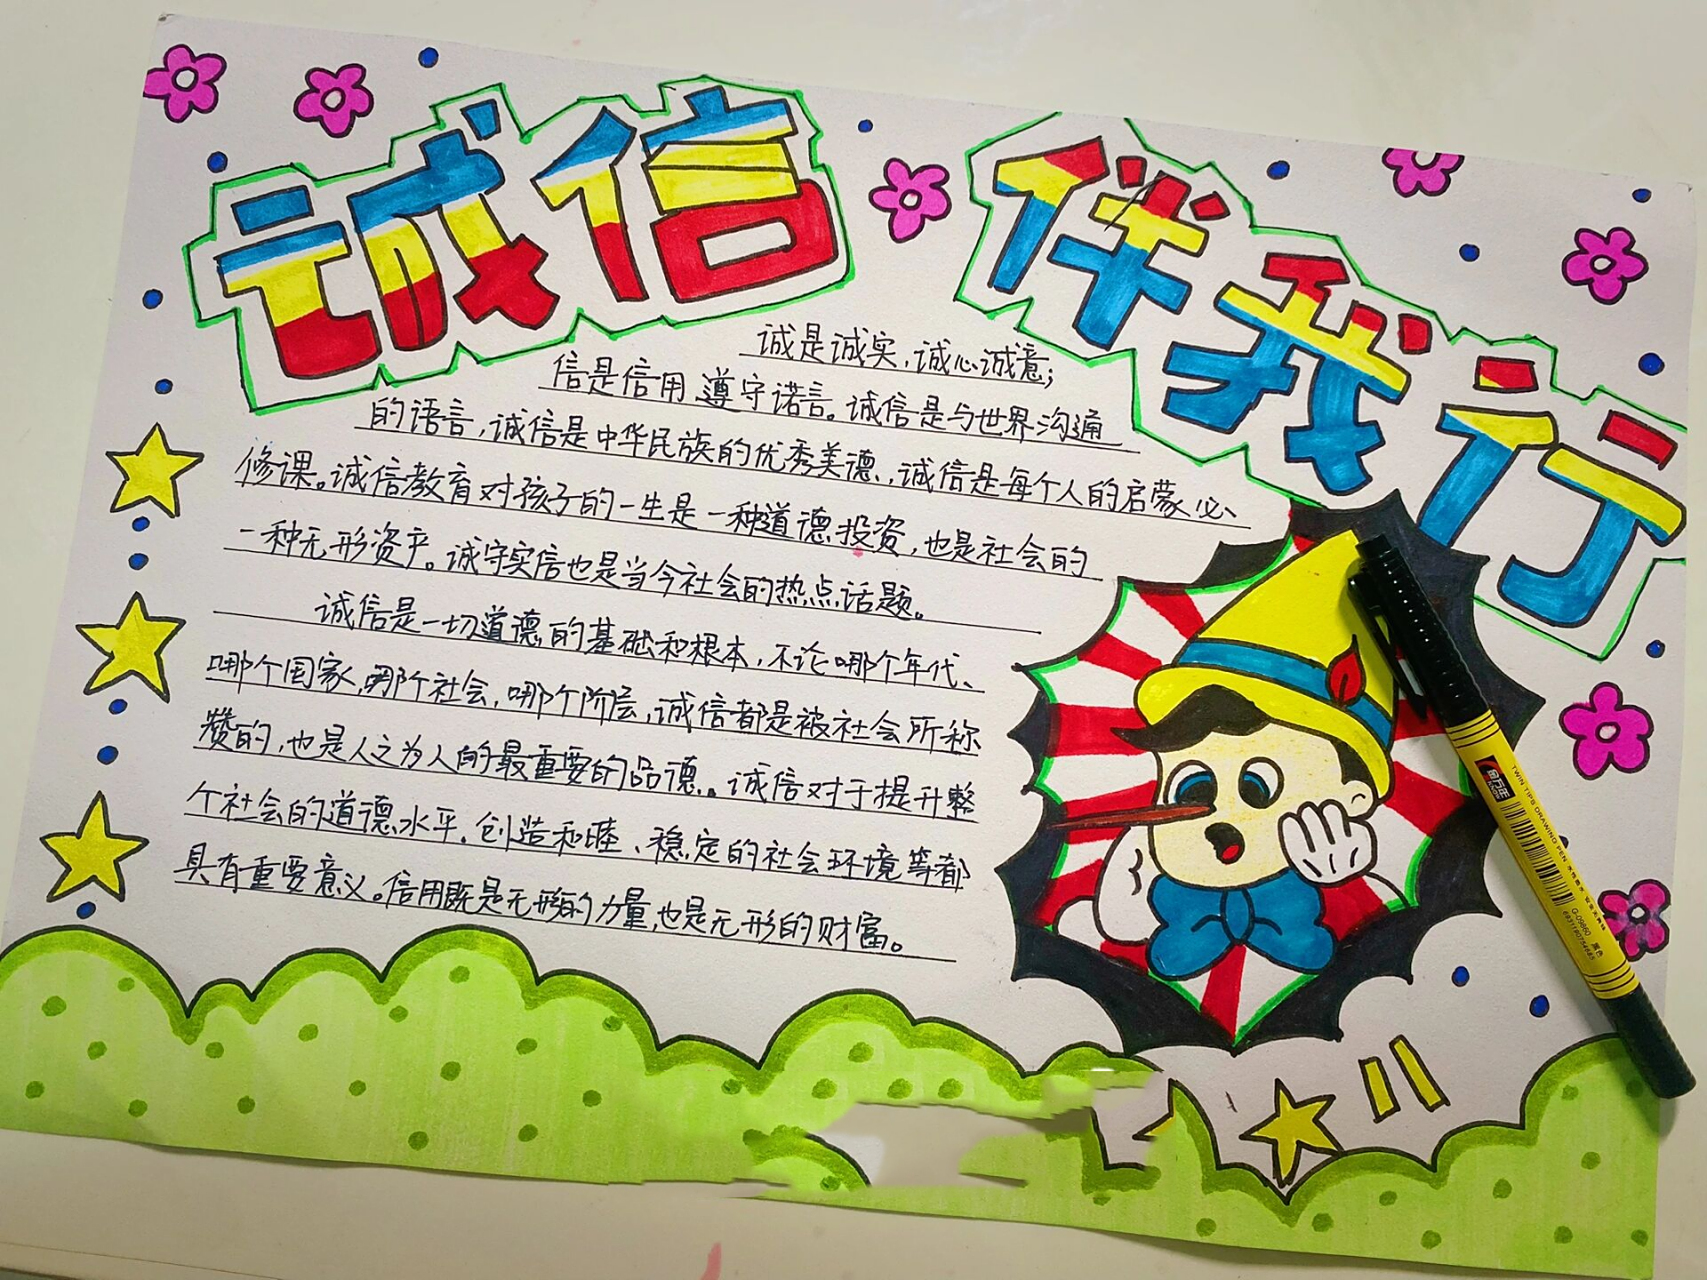 誠信 伴我行
诚是诚实，诚心诚意；
信是信用 遵守诺言。诚信是与世界沟通
的语言，诚信是中华民族的优秀美德，诚信是每个人的启蒙必
修课。诚信教育对孩子的一生是一种道德投资，也是社会的
一种无形资产。诚守实信也是当今社会的热点话题。
诚信是一切道德的基础和根本，不论哪个年代、
哪个国家，哪个社会，哪个阶层，诚信都是被社会所称
赞的，也是人之为人的最重要的品德。诚信对于提升整
个社会的道德水平．创造和睦、稳定的社会环境等都
具有重要意义。信用既是无形的力量，也是无形的财富。
金万年
TWIN TIPS DRAWING PEN
G-0980 黑色